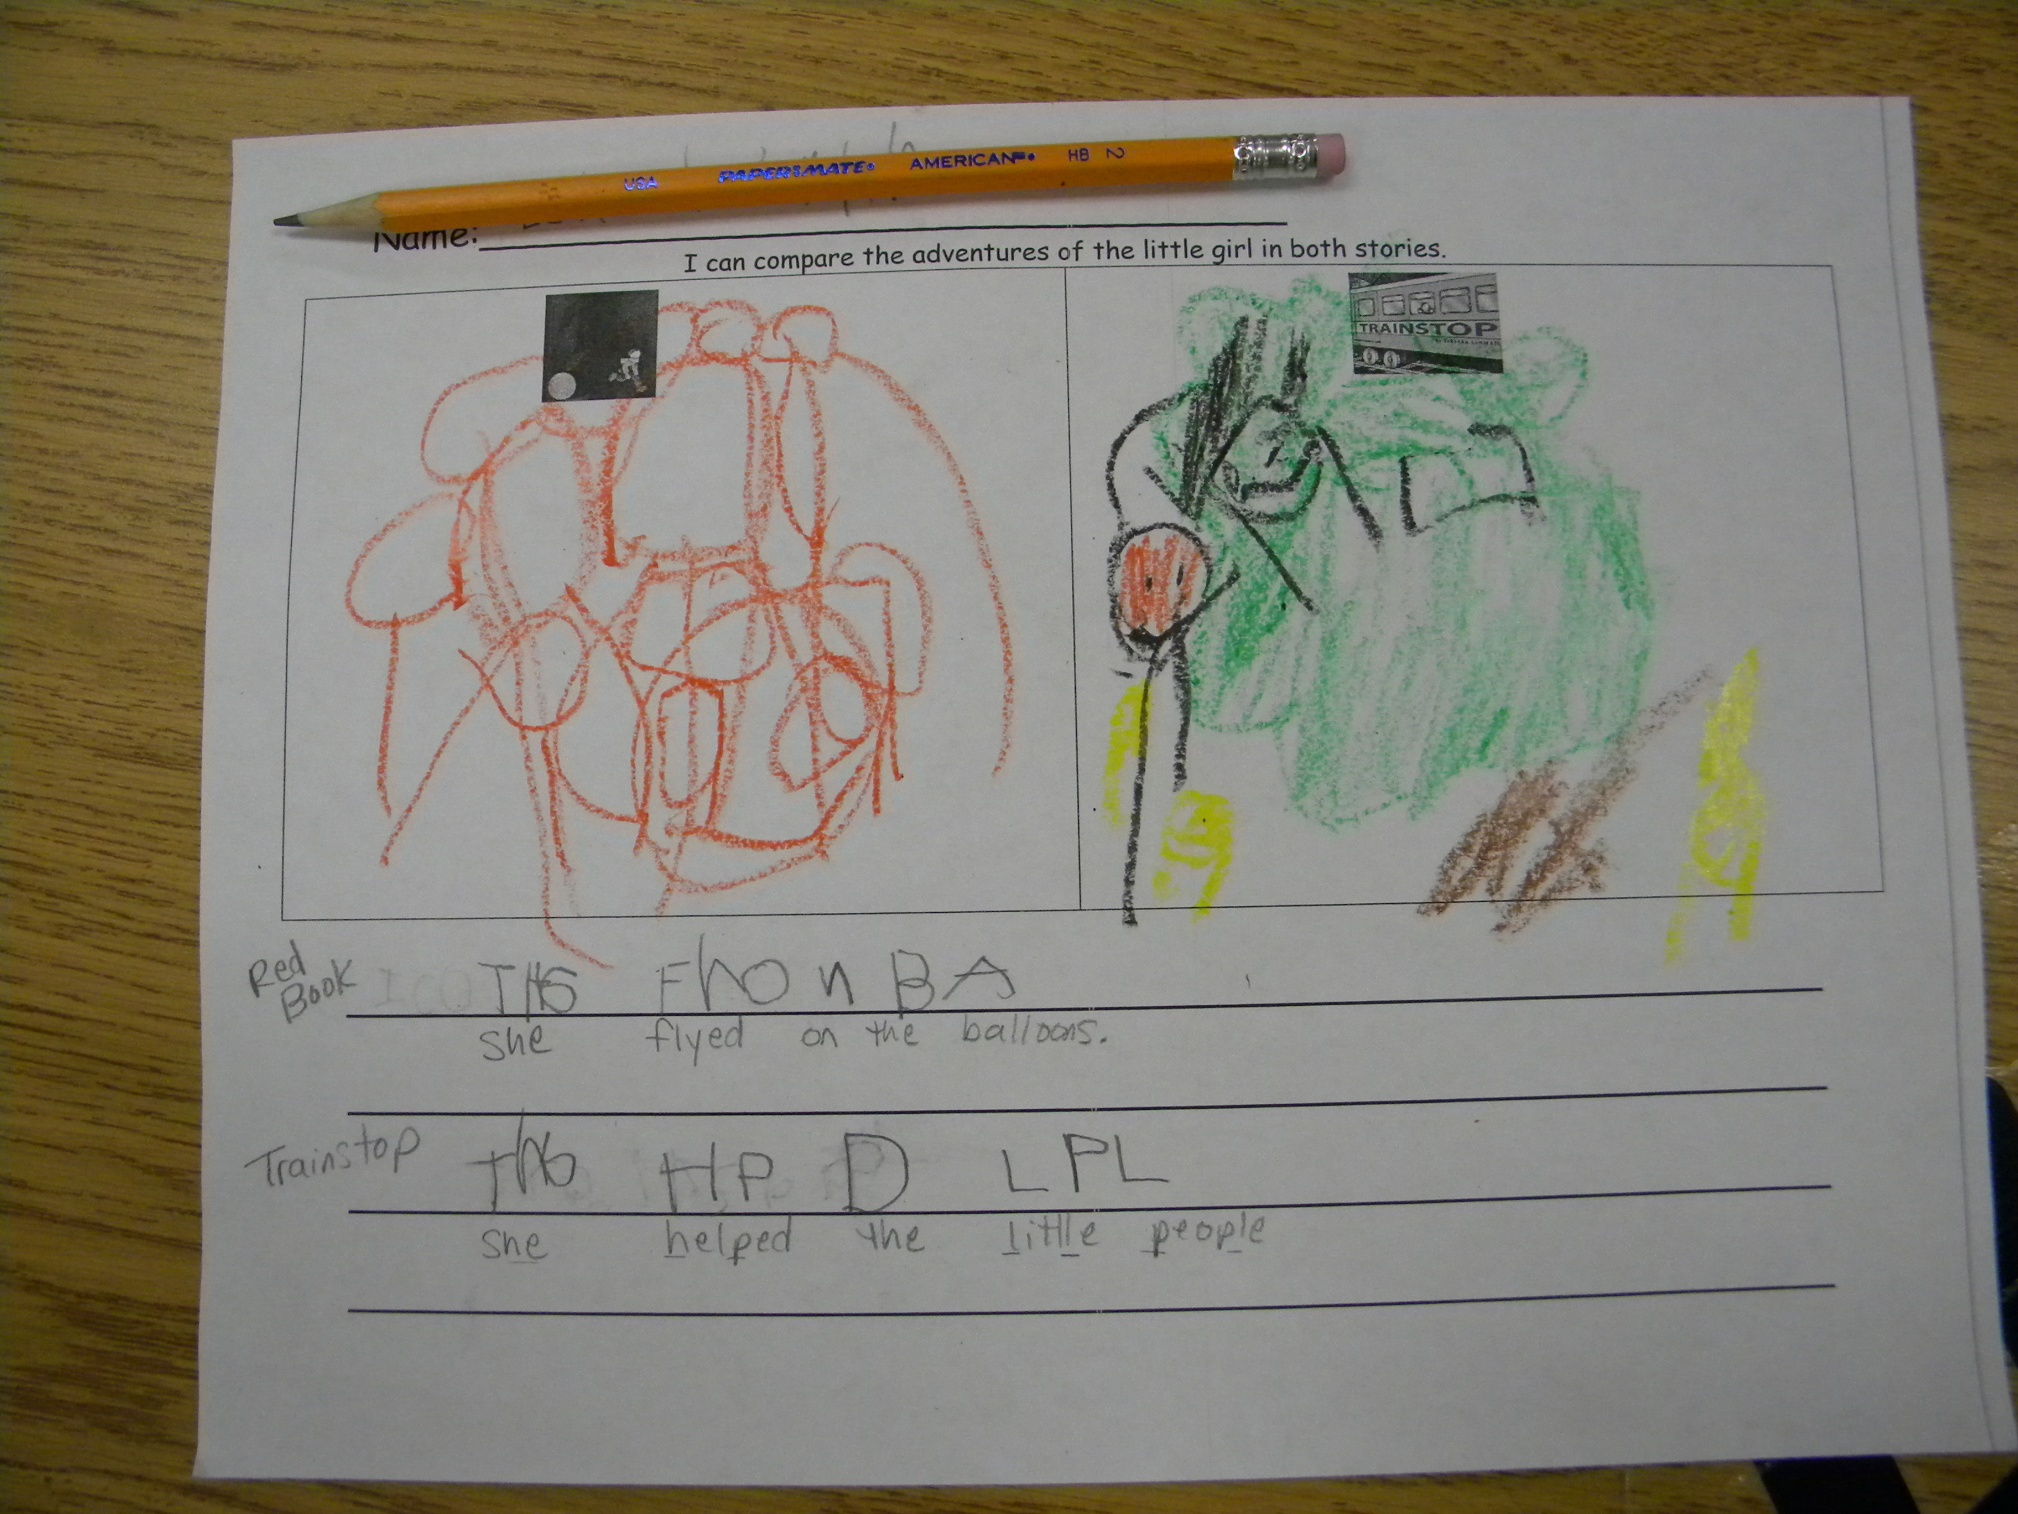 USA PAPER MATE AMERICAN HB 2
Name:
I can compare the adventures of the little girl in both stories.
TRAINSTOP
Red
Book
THS FhO n BA
she flyed on the balloons.
Trainstop
ThS HP D LPL
she helped the little people